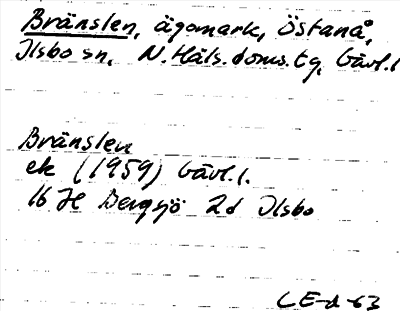 Bränslen, ägomark, Östanå,
Ilsbo sn, N. Häls. doms. tg, Gävl.l
Bränslen
ek (1959) Gävl.l.
16 H Bergsjö 2d Ilsbo
CE-d-63